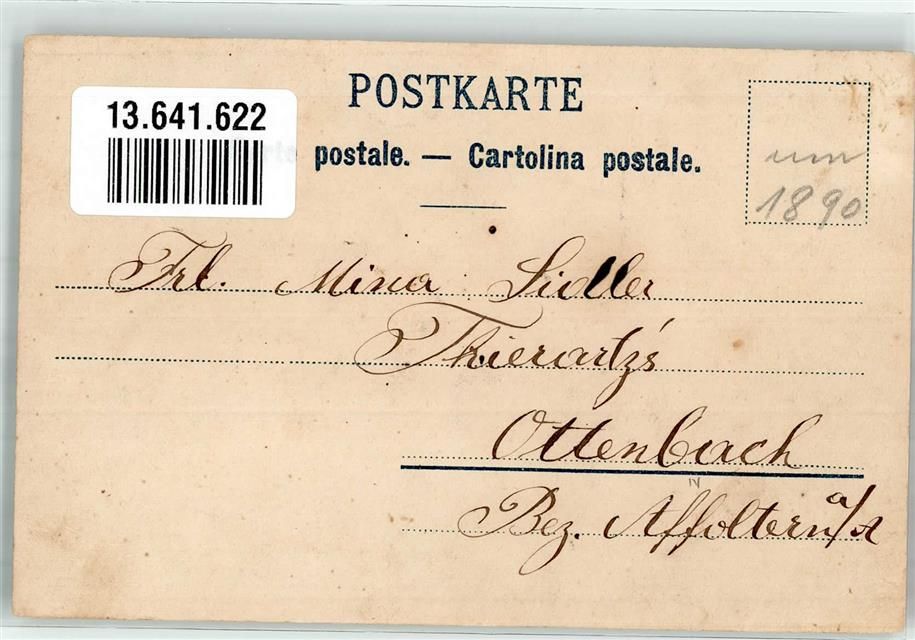 POSTKARTE
13.641.622
postale. — Cartolina postale.
um
1890
Frl. Mina Sidler
Thierartz's
Ottenbach
Bez. Affoltern a/A